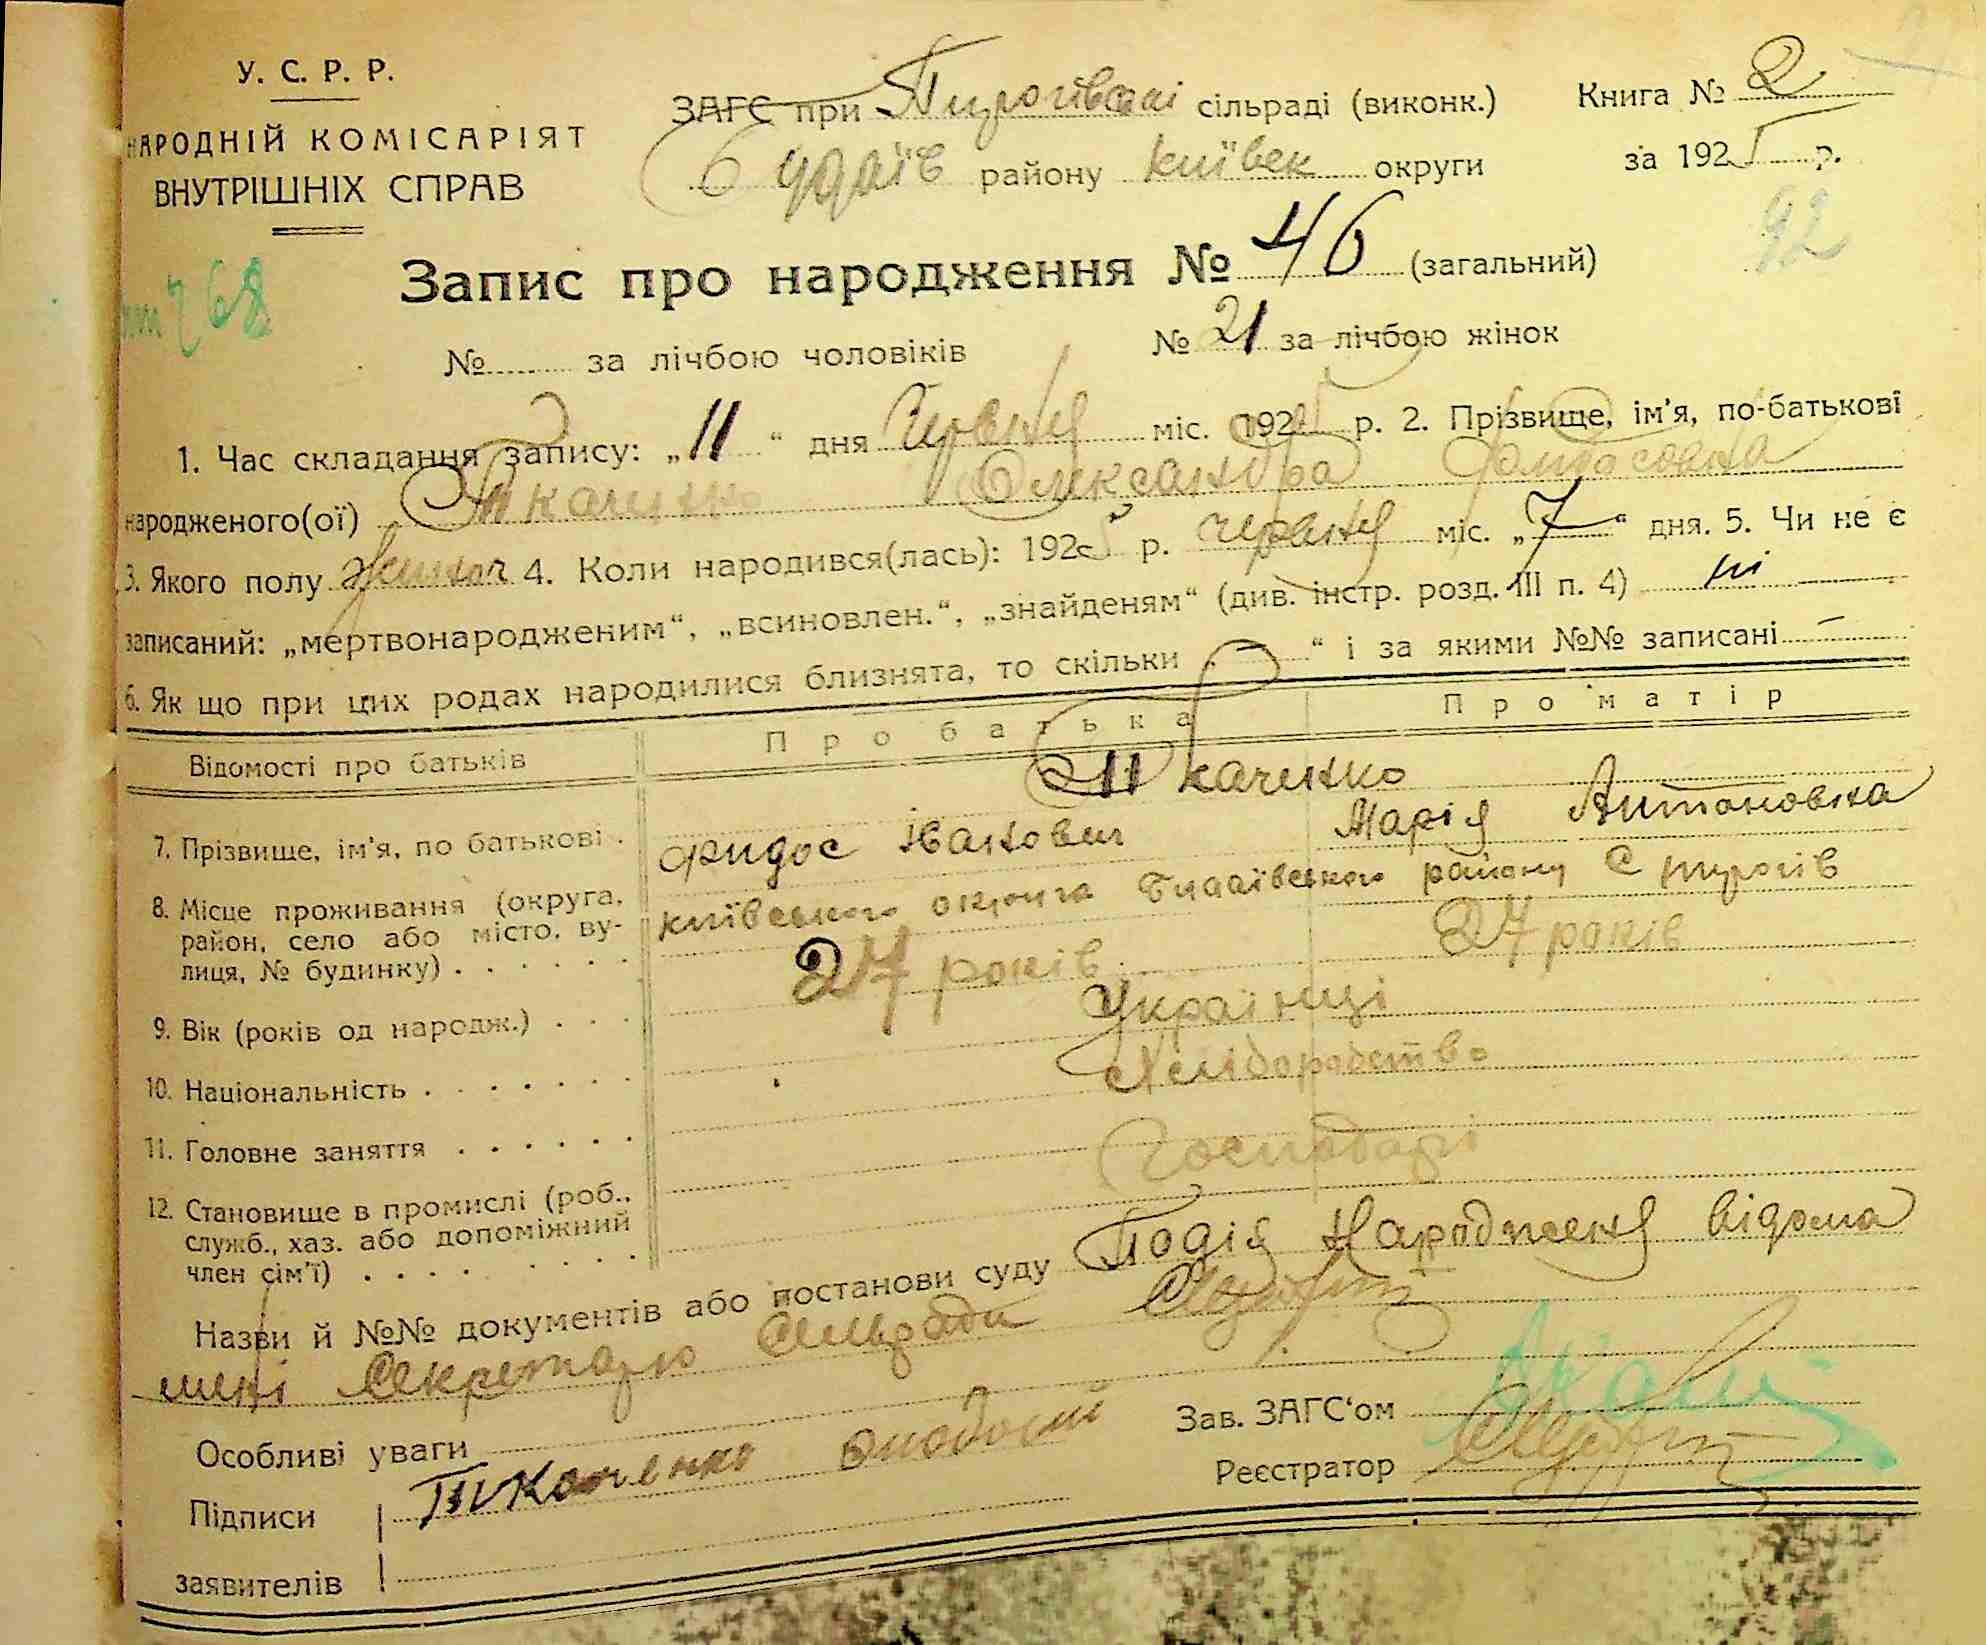 У. С. Р. Р.
НАРОДНІЙ КОМІСАРІЯТ
ВНУТРІШНІХ СПРАВ
ЗАГС при Пирогівскі сільраді (виконк.)
Будаїв району київск округи
Книга № 2
за 1925 р.
92
768
Запис про народження № 46 (загальний)
№ за лічбою чоловіків № 21 за лічбою жінок
1. Час складання запису: „11“ дня Червня міс. 1925 р. 2. Прізвище, ім'я, по-батькові
народженого(ої) Ткаченко Олександра
3. Якого полу жіноч 4. Коли народився(лась): 1925 р. червня міс. „7“ дня. 5. Чи не є
записаний: „мертвонародженим“, „всиновлен.“, „знайденям“ (див. інстр. розд. III п. 4) ні
6. Як що при цих родах народилися близнята, то скільки „ —“ і за якими №№ записані —
Відомості про батьків Про батька Про матір
Ткаченко
7. Прізвище, ім'я, по батькові . Фидос Іванович Марія Антоновна
8. Місце проживання (округа, район, село або місто, вулиця, № будинку) . . . . . . київського округа Будаївського району С пирогів
9. Вік (років од народж.) . . . 27 років 27 років
10. Національність . . . . . . . Українці
11. Головне заняття . . . . . . Хліборобство
12. Становище в промислі (роб., служб., хаз. або допоміжний член сім'ї) . . . . . . . . Господарі
Назви й №№ документів або постанови суду Подія Народженя відома
мені Секретарю Сільради
Особливі уваги
Зав. ЗАГС'ом
Реєстратор
Підписи
заявителів
Ткаченко